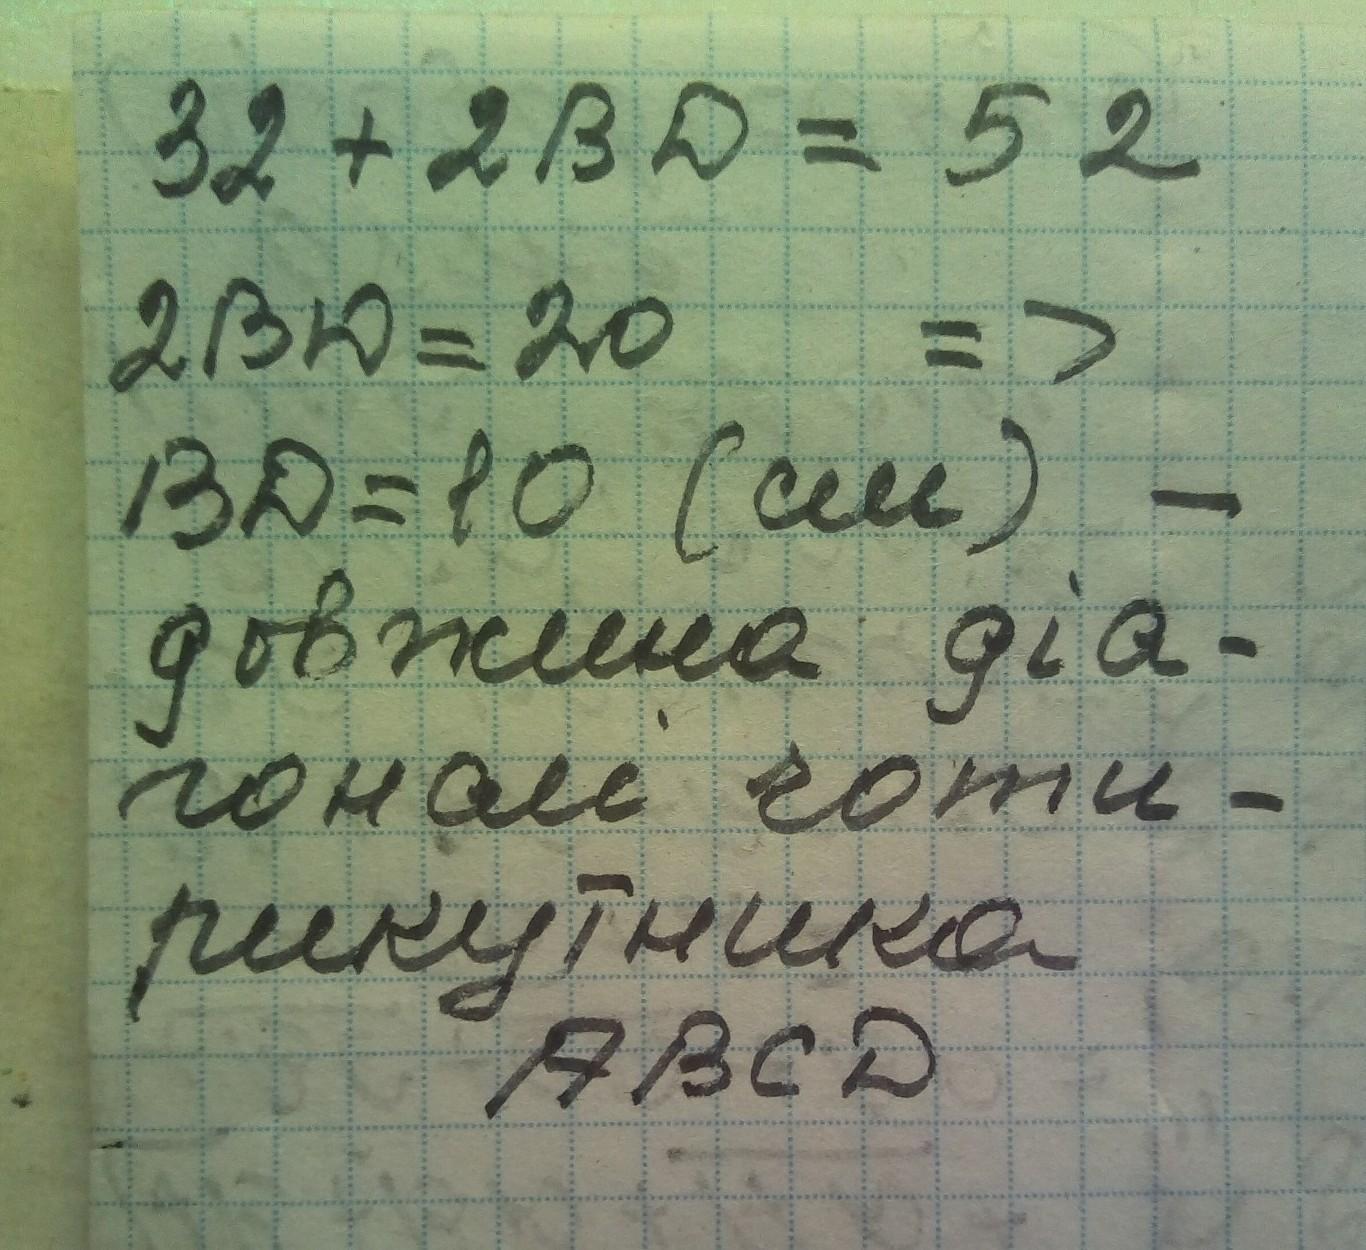 32 + 2BD = 52
2BD = 20 =>
BD = 10 (см) -
довжина діа-
гоналі чоти-
рикутника
ABCD